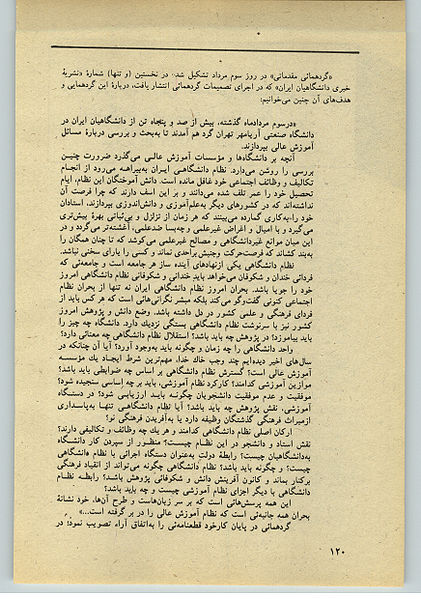 «گردهمائی مقدماتی» در روز سوم مرداد تشکیل شد. در نخستین (و تنها) شمارهٔ «نشریهٔ
خبری دانشگاهیان ایران» که در اجرای تصمیمات گردهمائی انتشار یافت، دربارهٔ این گردهمایی و
هدف‌های آن چنین می‌خوانیم:
«درسوم مردادماه گذشته، بیش از صد و پنجاه تن از دانشگاهیان ایران در
دانشگاه صنعتی آریامهر تهران گرد هم آمدند تا به‌بحث و بررسی دربارهٔ مسائل
آموزش عالی بپردازند.
آنچه بر دانشگاه‌ها و مؤسسات آموزش عالی می‌گذرد ضرورت چنین
بررسی را روشن می‌دارد. نظام دانشگاهی ایران به‌بیراهه می‌رود از انجام
تکالیف و وظائف اجتماعی خود غافل مانده است. دانش آموختگان این نظام، ایام
تحصیل خود را عمر تلف شده می‌دانند و بر این اسف دارند که چرا فرصت آن
نداشته‌اند که در کشورهای دیگر به‌علم‌آموزی و دانش‌اندوزی بپردازند، استادان
خود را به‌کاری گمارده می‌بینند که هر زمان از تزلزل و بی‌ثباتی بهرهٔ بیش‌تری
می‌گیرد و با امیال و اغراض غیرعلمی و چه‌بسا ضدعلمی، آغشته‌تر می‌گردد و در
این میان موانع غیردانشگاهی و مصالح غیرعلمی می‌کوشد که تا چنان همگان را
به‌بند کشاند که فرصت‌حرکت وجنبش‌براحدی نماند و کسی را یارای سخنی نباشد.
نظام دانشگاهی یکی ازنهادهای آینده ساز هر جامعه است و جامعه‌ئی که
فردائی خندان و شکوفان می‌خواهد باید خندانی و شکوفائی نظام دانشگاهی امروز
خود را جویا باشد. بحران امروز نظام دانشگاهی ایران نه تنها از بحران نظام
اجتماعی کنونی گفت‌وگو می‌کند بلکه مبشر نگرانی‌هائی است که هر کس باید از
فردای فرهنگی و علمی کشور در دل داشته باشد. وضع دانش و پژوهش امروز
کشور نیز با سرنوشت نظام دانشگاهی بستگی نزدیك دارد. دانشگاه چه چیز را
باید بیاموزد؛ در پژوهش چه باید باشد؟ استقلال نظام دانشگاهی چه معنائی دارد؟
واحد دانشگاهی را چه زمان و چگونه باید به‌وجود آورد؟ آیا آن چنانکه در
سال‌های اخیر دیده‌ایم چند وجب خاك خدا، مهم‌ترین شرط ایجاد یك مؤسسه
آموزش عالی است؟ گسترش نظام دانشگاهی بر اساس چه ضوابطی باید باشد؟
موازین آموزشی کدامند؟ کارکرد نظام آموزشی، باید بر چه اساسی سنجیده شود؟
موفقیت و عدم موفقیت دانشجویان چگونه باید ارزیابی شود؟ در دستگاه
آموزشی، نقش پژوهش چه باید باشد؟ آیا نظام دانشگاهی تنها به‌پاسداری
ازمیراث فرهنگی گذشتگان وظیفه دارد یا به‌آفریدن فرهنگی نو؟
ارکان اصلی نظام دانشگاهی کدامند و هر یك چه وظائف و تکالیفی دارند؟
نقش استاد و دانشجو در این نظام چیست؟ منظور از سپردن کار دانشگاه
به‌دانشگاهیان چیست؟ رابطهٔ دولت به‌عنوان دستگاه اجرائی با نظام دانشگاهی
چیست؟ و چگونه باید باشد؟ نظام دانشگاهی چگونه می‌تواند از انقیاد فرهنگی
برکنار بماند و کانون آفرینش دانش و شکوفائی پژوهش باشد؟ رابطه نظام
دانشگاهی با دیگر اجزای نظام آموزشی چیست و چه باید باشد؟
این همه پرسش‌هائی است که بر سر زبان‌هاست و طرح آن‌ها، خود نشانهٔ
بحران همه جانبه‌ئی است که نظام آموزش عالی را در بر گرفته است...»
گردهمائی در پایان کارخود قطعنامه‌ئی را به‌اتفاق آراء تصویب نمود؛ در
۱۲۰